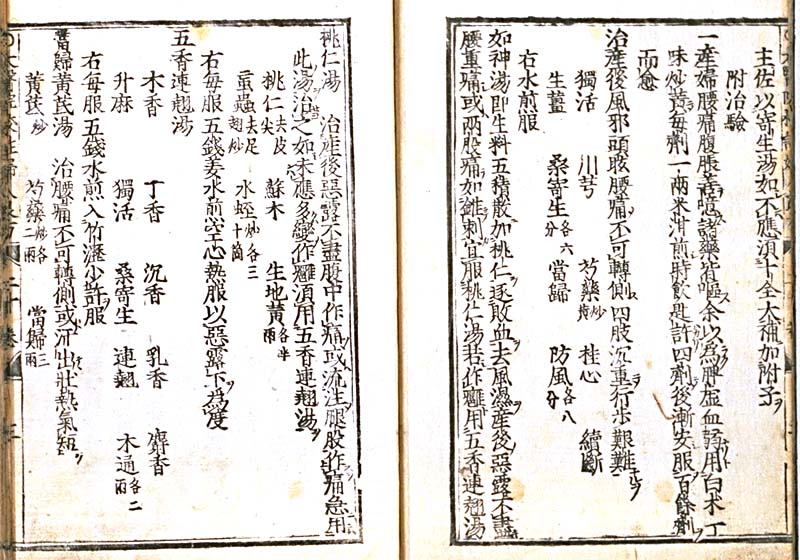 主佐以寄生湯如不應須十全大補加附子
附治驗
一產婦腰痛腹脹善噫諸藥皆嘔余以為脾虛血弱用白朮一
味炒黃每劑一兩米泔煎時飲匙許四劑後漸安服百餘劑
而愈
治產後風邪頭眩腰痛不可轉側四肢沉重行步艱難
獨活 川芎 芍藥炒 桂心 續斷
生薑 桑寄生各六分 當歸 防風各八分
右水煎服
如神湯即生料五積散加桃仁逐敗血去風濕產後惡露不盡
腰重痛或兩股痛如錐刺宜服桃仁湯若作癰用五香連翹湯
桃仁湯 治產後惡露不盡腹中作痛或流注腿股作痛急用
此湯治之如未應多變作癰須用五香連翹湯
桃仁去皮尖 蘇木 生地黃各半兩
虻蟲去足翅炒 水蛭炒各三十箇
右每服五錢姜水煎空心熱服以惡露下為度
五香連翹湯
木香 丁香 沉香 乳香 麝香
升麻 獨活 桑寄生 連翹 木通各二兩
右每服五錢水煎入竹瀝少許服
當歸黃芪湯 治腰痛不可轉側或汗出壯熱氣短
黃芪炒 芍藥炒各二兩 當歸三兩